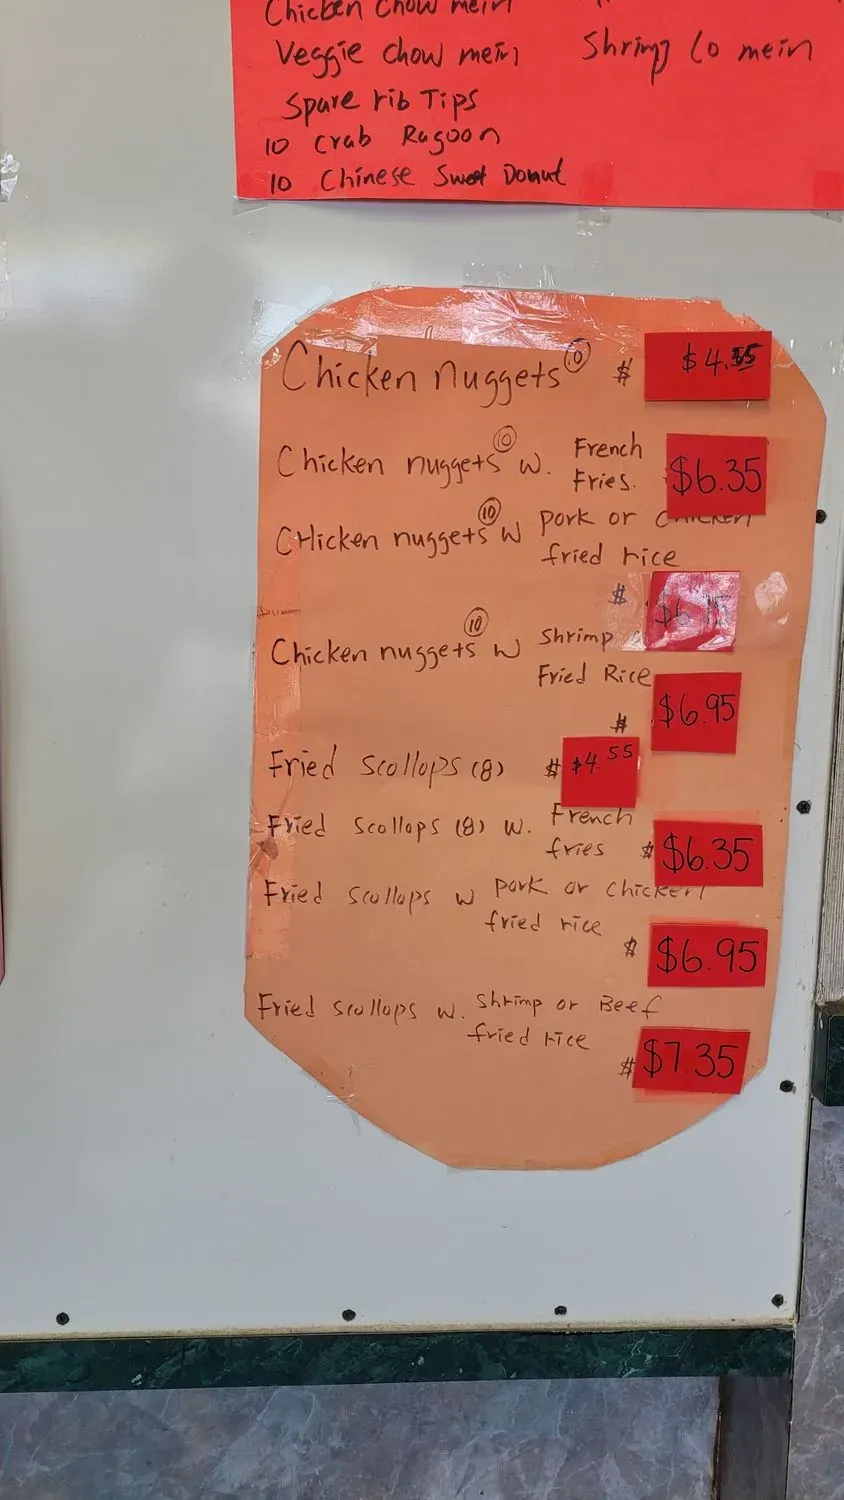 Chicken Chow mein
Veggie chow mein Shrimp Lo mein
Spare rib Tips
10 Crab Ragoon
10 Chinese Sweet Donut
Chicken nuggets 10 $ $4.55
Chicken nuggets 10 w. French Fries. $6.35
CHicken nuggets 10 w pork or chicken
fried rice
$
Chicken nuggets 10 w Shrimp
Fried Rice
$ $6.95
Fried Scollops (8) $ $4.55
Fried Scollops (8) w. French
fries $ $6.35
Fried Scollops w pork or chicken
fried rice
$ $6.95
Fried Scollops w. Shrimp or Beef
fried rice
$ $7.35